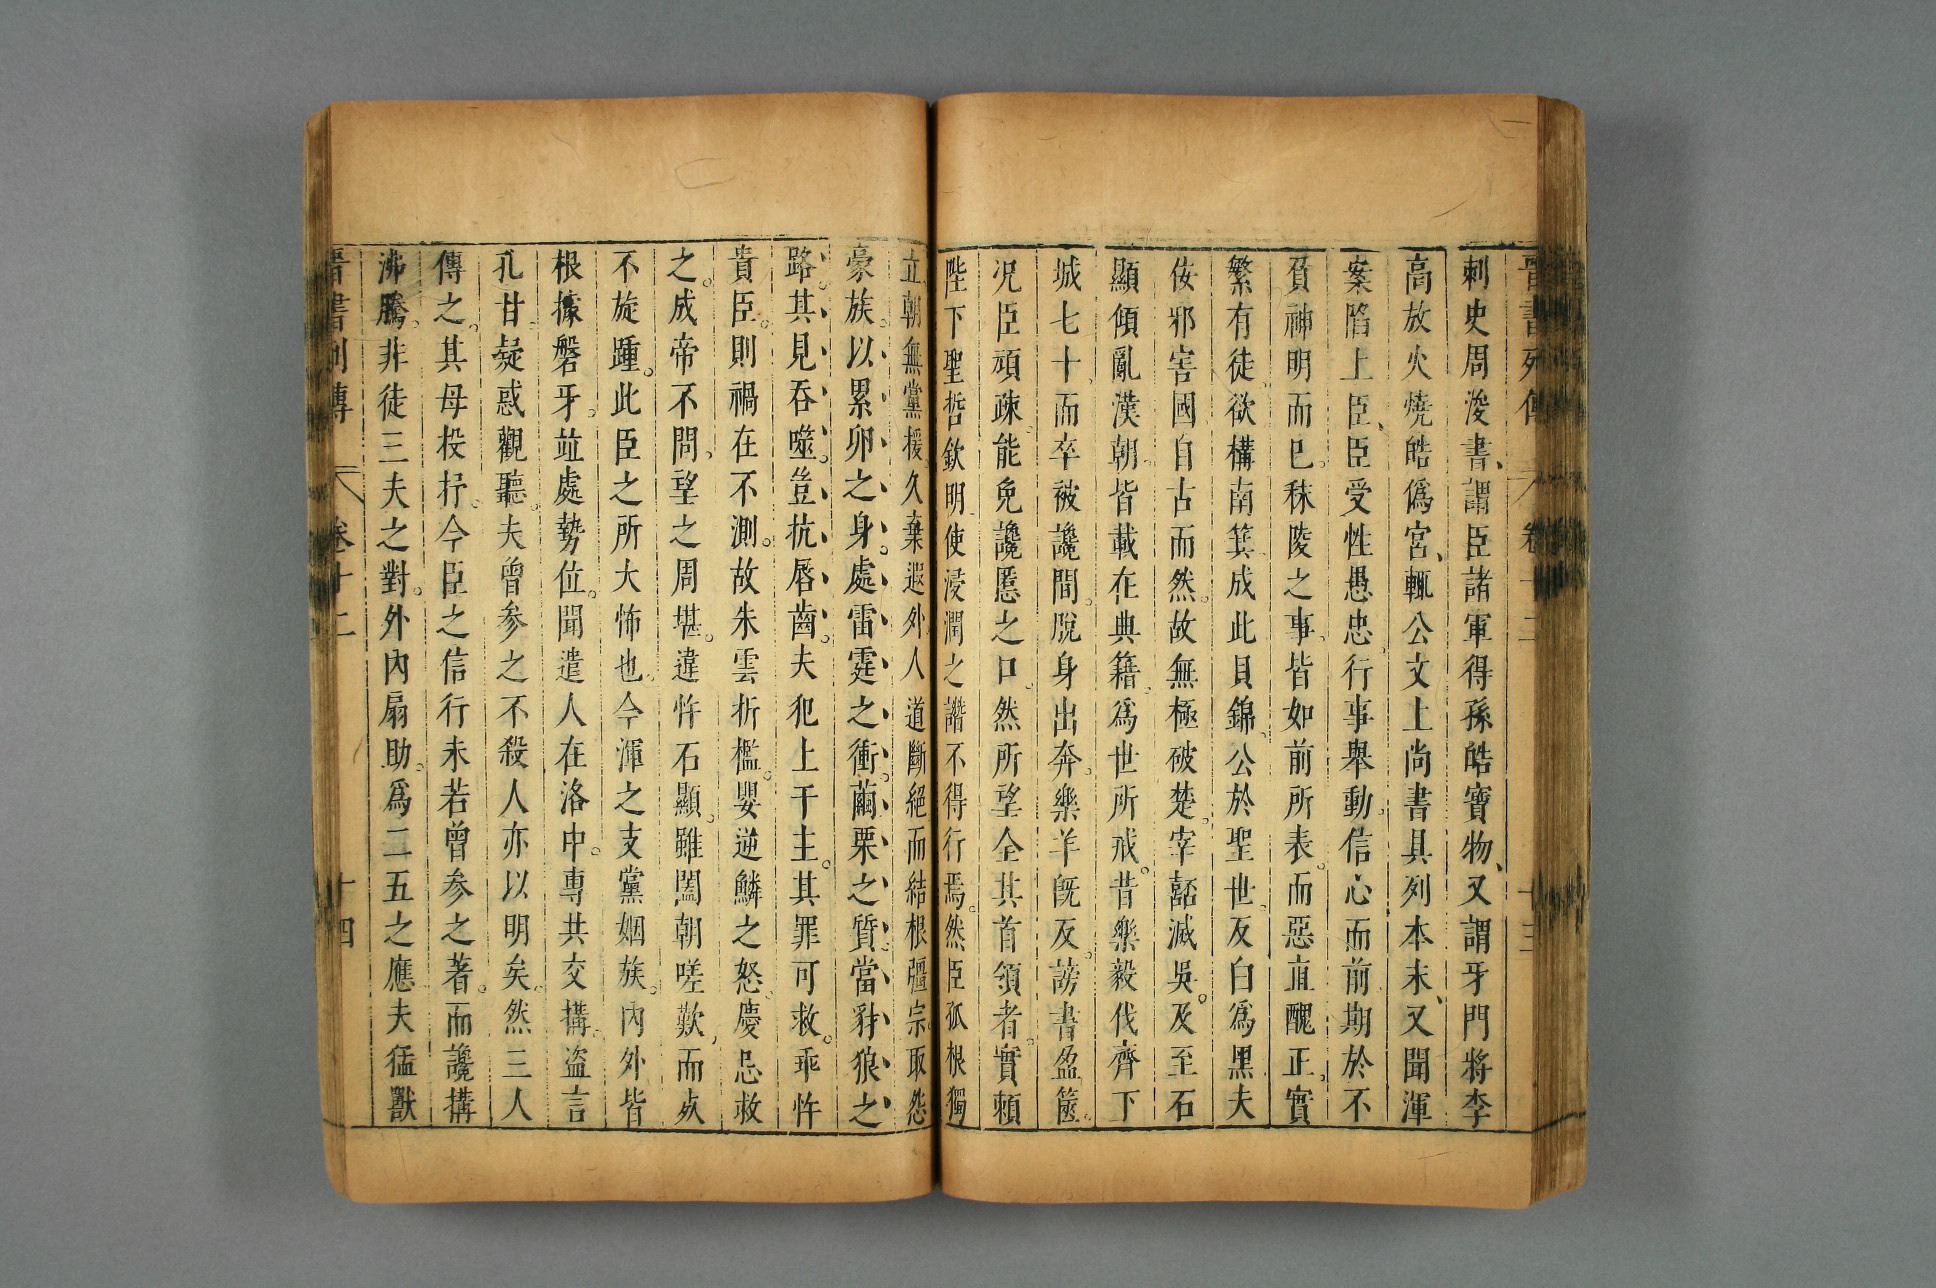 晉書列傳 卷十二 十三
刺史周浚書、謂臣諸軍得孫皓寶物、又謂牙門將李
高放火燒皓僞宮、輒公文上尚書具列本末、又聞渾
案陷上臣、臣受性愚忠、行事舉動、信心而前、期於不
負神明而已。秣陵之事、皆如前所表。而惡直醜正、實
繁有徒、欲構南箕、成此貝錦、公於聖世、反白爲黑、夫
佞邪害國、自古而然。故無極破楚、宰嚭滅吳。及至石
顯、傾亂漢朝、皆載在典籍、爲世所戒。昔樂毅伐齊、下
城七十、而卒被讒間、脫身出奔。樂羊旣反、謗書盈篋。
况臣頑疎、能免讒慝之口、然所望全其首領者、實賴
陛下聖哲欽明、使浸潤之譖不得行焉。然臣孤根獨
立、朝無黨援。久棄遐外、人道斷絕、而結根彊宗、取怨
豪族。以累卵之身。處雷霆之衝。繭栗之質。當豺狼之
路。其見吞噬。豈抗脣齒。夫犯上干主。其罪可救。乖忤
貴臣。則禍在不測。故朱雲折檻。嬰逆鱗之怒。慶忌救
之。成帝不問。望之周堪。違忤石顯。雖闔朝嗟歎、而死
不旋踵。此臣之所大怖也。今渾之支黨姻族。內外皆
根據磐牙。竝處勢位。聞遣人在洛中。專共交構。盜言
孔甘。疑惑觀聽。夫曾參之不殺人、亦以明矣。然三人
傳之。其母投抒。今臣之信行、未若曾參之著。而讒構
沸騰。非徒三夫之對。外內扇助。爲二五之應。夫猛獸
晉書列傳 卷十二 十四